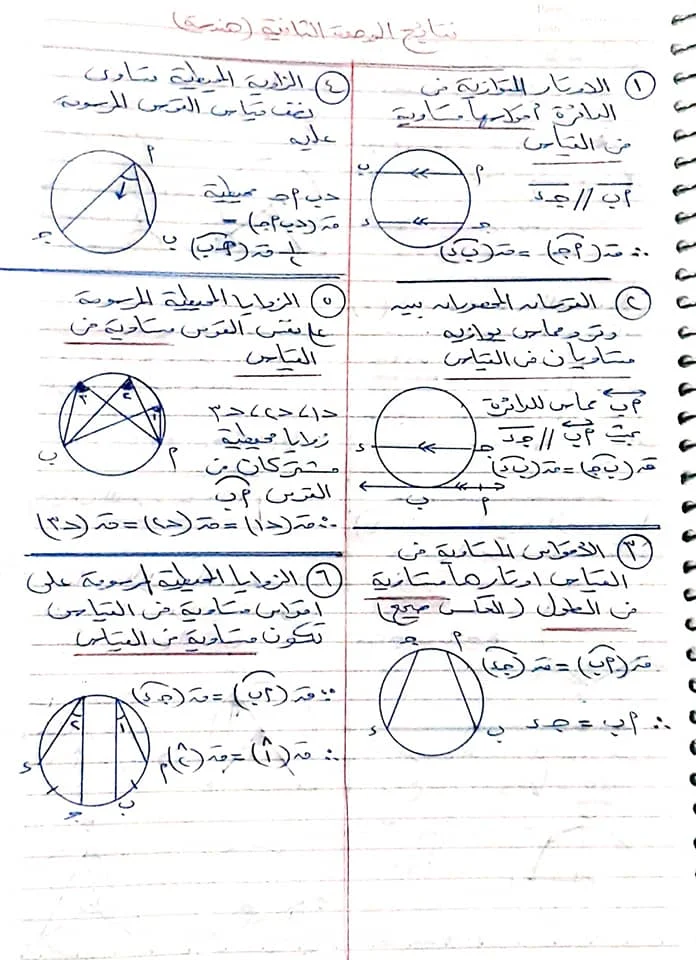 نتائج الوحدة الثانية (هندسة)
١ الأوتار المتوازية فى
الدائرة أقواسها متساوية
فى القياس
ب م
د جـ
م ب // جـ د
∴ ق (م جـ) = ق (ب د)
٢ القوسان المحصوران بين
وتر ومماس يوازيه
متساويان فى القياس
م ب مماس للدائرة
بحيث م ب // جـ د
ق (ب جـ) = ق (ب د)
د جـ
ب م
٣ الأقواس المتساوية فى
القياس أوتارها متساوية
فى الطول (العكس صحيح)
جـ م
ق (م ب) = ق (جـ د)
د ب
∴ م ب = جـ د
٤ الزاوية المحيطية تساوى
نصف قياس القوس المرسومة
عليه
م
جـ ب
د ب م جـ محيطية
ق (د ب م جـ) =
١/٢ ق (جـ ب)
٥ الزوايا المحيطية المرسومة
على نفس القوس متساوية فى
القياس
٣ ٢ ١
ب م
د١، د٢، د٣
زوايا محيطية
مشتركان فى
القوس م ب
∴ ق (د١) = ق (د٢) = ق (د٣)
٦ الزوايا المحيطية المرسومة على
أقواس متساوية فى القياس
تكون متساوية فى القياس
∵ ق (م ب) = ق (جـ د)
٢ ١
∴ ق (١) = ق (٢)
د م
جـ ب